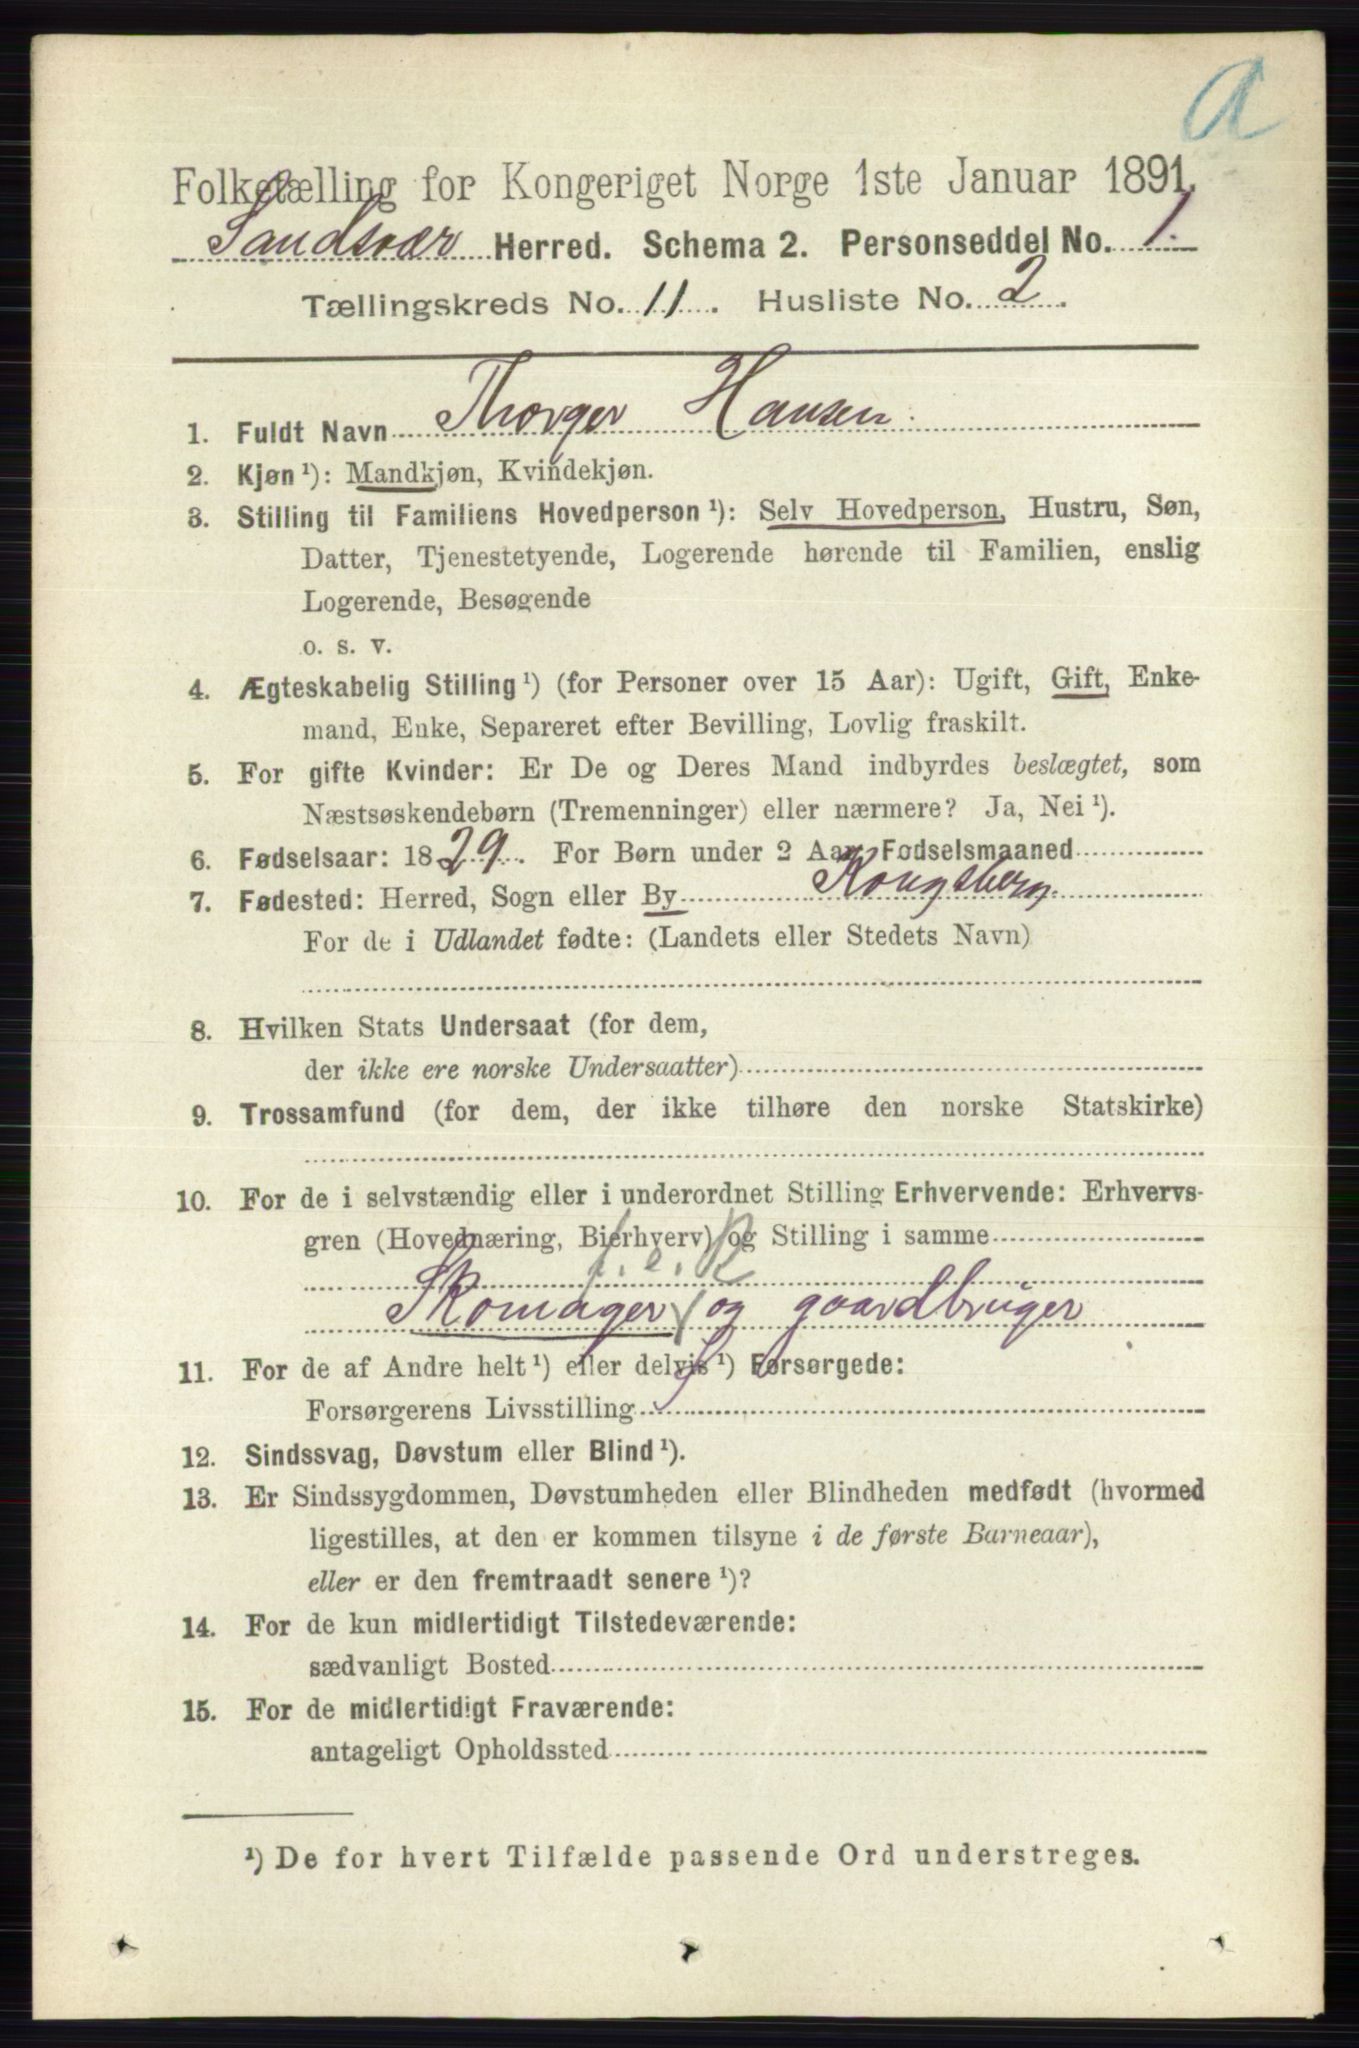 a
Folketælling for Kongeriget Norge 1ste Januar 1891.
Sandsvær Herred. Schema 2. Personseddel No. 1.
Tællingskreds No. 11. Husliste No. 2.
1. Fuldt Navn Thorger Hansen.
2. Kjøn ¹): Mandkjøn, Kvindekjøn.
3. Stilling til Familiens Hovedperson ¹): Selv Hovedperson, Hustru, Søn,
Datter, Tjenestetyende, Logerende hørende til Familien, enslig
Logerende, Besøgende
o. s. v.
4. Ægteskabelig Stilling ¹) (for Personer over 15 Aar): Ugift, Gift, Enke-
mand, Enke, Separeret efter Bevilling, Lovlig fraskilt.
5. For gifte Kvinder: Er De og Deres Mand indbyrdes beslægtet, som
Næstsøskendebørn (Tremenninger) eller nærmere? Ja, Nei ¹).
6. Fødselsaar: 1829. For Børn under 2 Aar, Fødselsmaaned
7. Fødested: Herred, Sogn eller By Kongsberg.
For de i Udlandet fødte: (Landets eller Stedets Navn)
8. Hvilken Stats Undersaat (for dem,
der ikke ere norske Undersaatter)
9. Trossamfund (for dem, der ikke tilhøre den norske Statskirke)
10. For de i selvstændig eller i underordnet Stilling Erhvervende: Erhvervs-
gren (Hovednæring, Bierhverv) og Stilling i samme
Skomager og gaardbruger
11. For de af Andre helt ¹) eller delvis ¹) Forsørgede:
Forsørgerens Livsstilling
12. Sindssvag, Døvstum eller Blind ¹).
13. Er Sindssygdommen, Døvstumheden eller Blindheden medfødt (hvormed
ligestilles, at den er kommen tilsyne i de første Barneaar),
eller er den fremtraadt senere ¹)?
14. For de kun midlertidigt Tilstedeværende:
sædvanligt Bosted
15. For de midlertidigt Fraværende:
antageligt Opholdssted
¹) De for hvert Tilfælde passende Ord understreges.